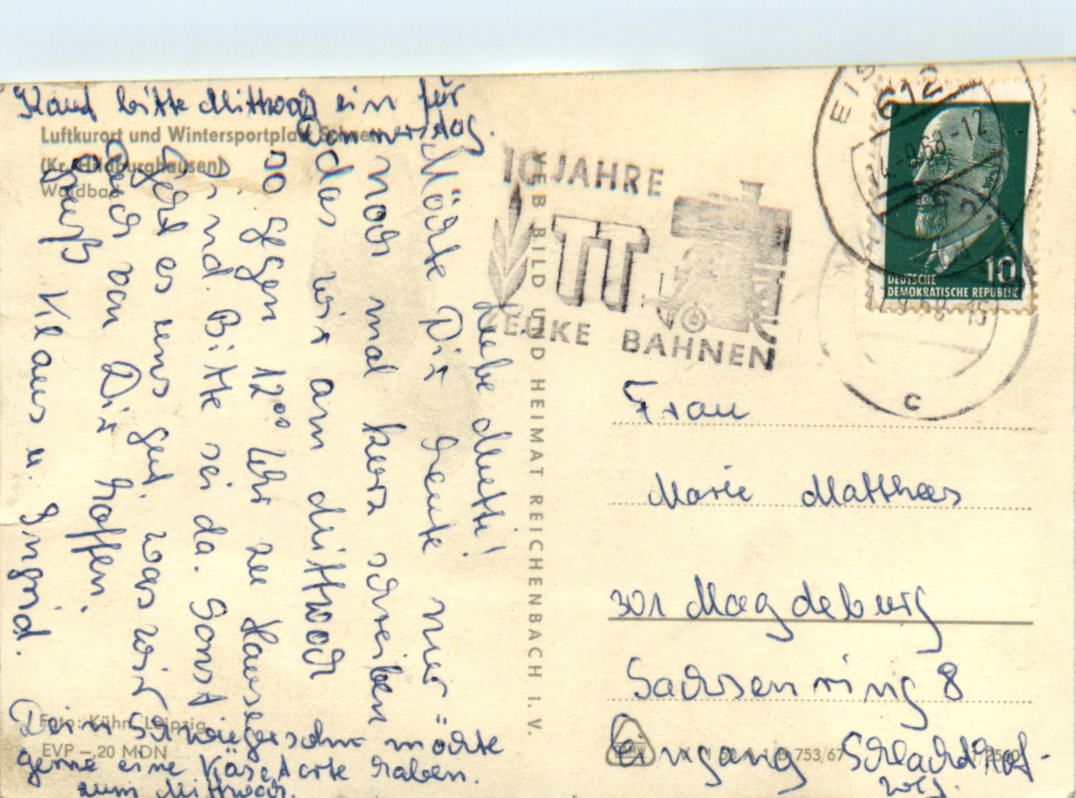 Kauf bitte Mittwoch ein für
Donnerstag.
Luftkurort und Wintersportplatz
(Kr. Hildburghausen)
Waldbad
Liebe Mutti!
Möchte Dir heute nur
noch mal kurz schreiben
das wir am Mittwoch
so gegen 12⁰⁰ Uhr zu Hause
sind. Bitte sei da. Sonst
geht es uns gut, was wir
auch von Dir hoffen.
Gruß Klaus u. Ingrid.
Dein Schwiegersohn möchte
gerne eine Käsetorte haben.
zum Mittwoch.
Foto: Kühn, Leipzig
EVP -,20 MDN
VEB BILD UND HEIMAT REICHENBACH I. V.
10 JAHRE
TT
ZEUKE BAHNEN
612
-9.68-12
DEUTSCHE
DEMOKRATISCHE REPUBLIK
10
c
Frau
Marie Matthees
301 Magdeburg
Sachsenring 8
Eingang Schlachthof-
weg.
753/67